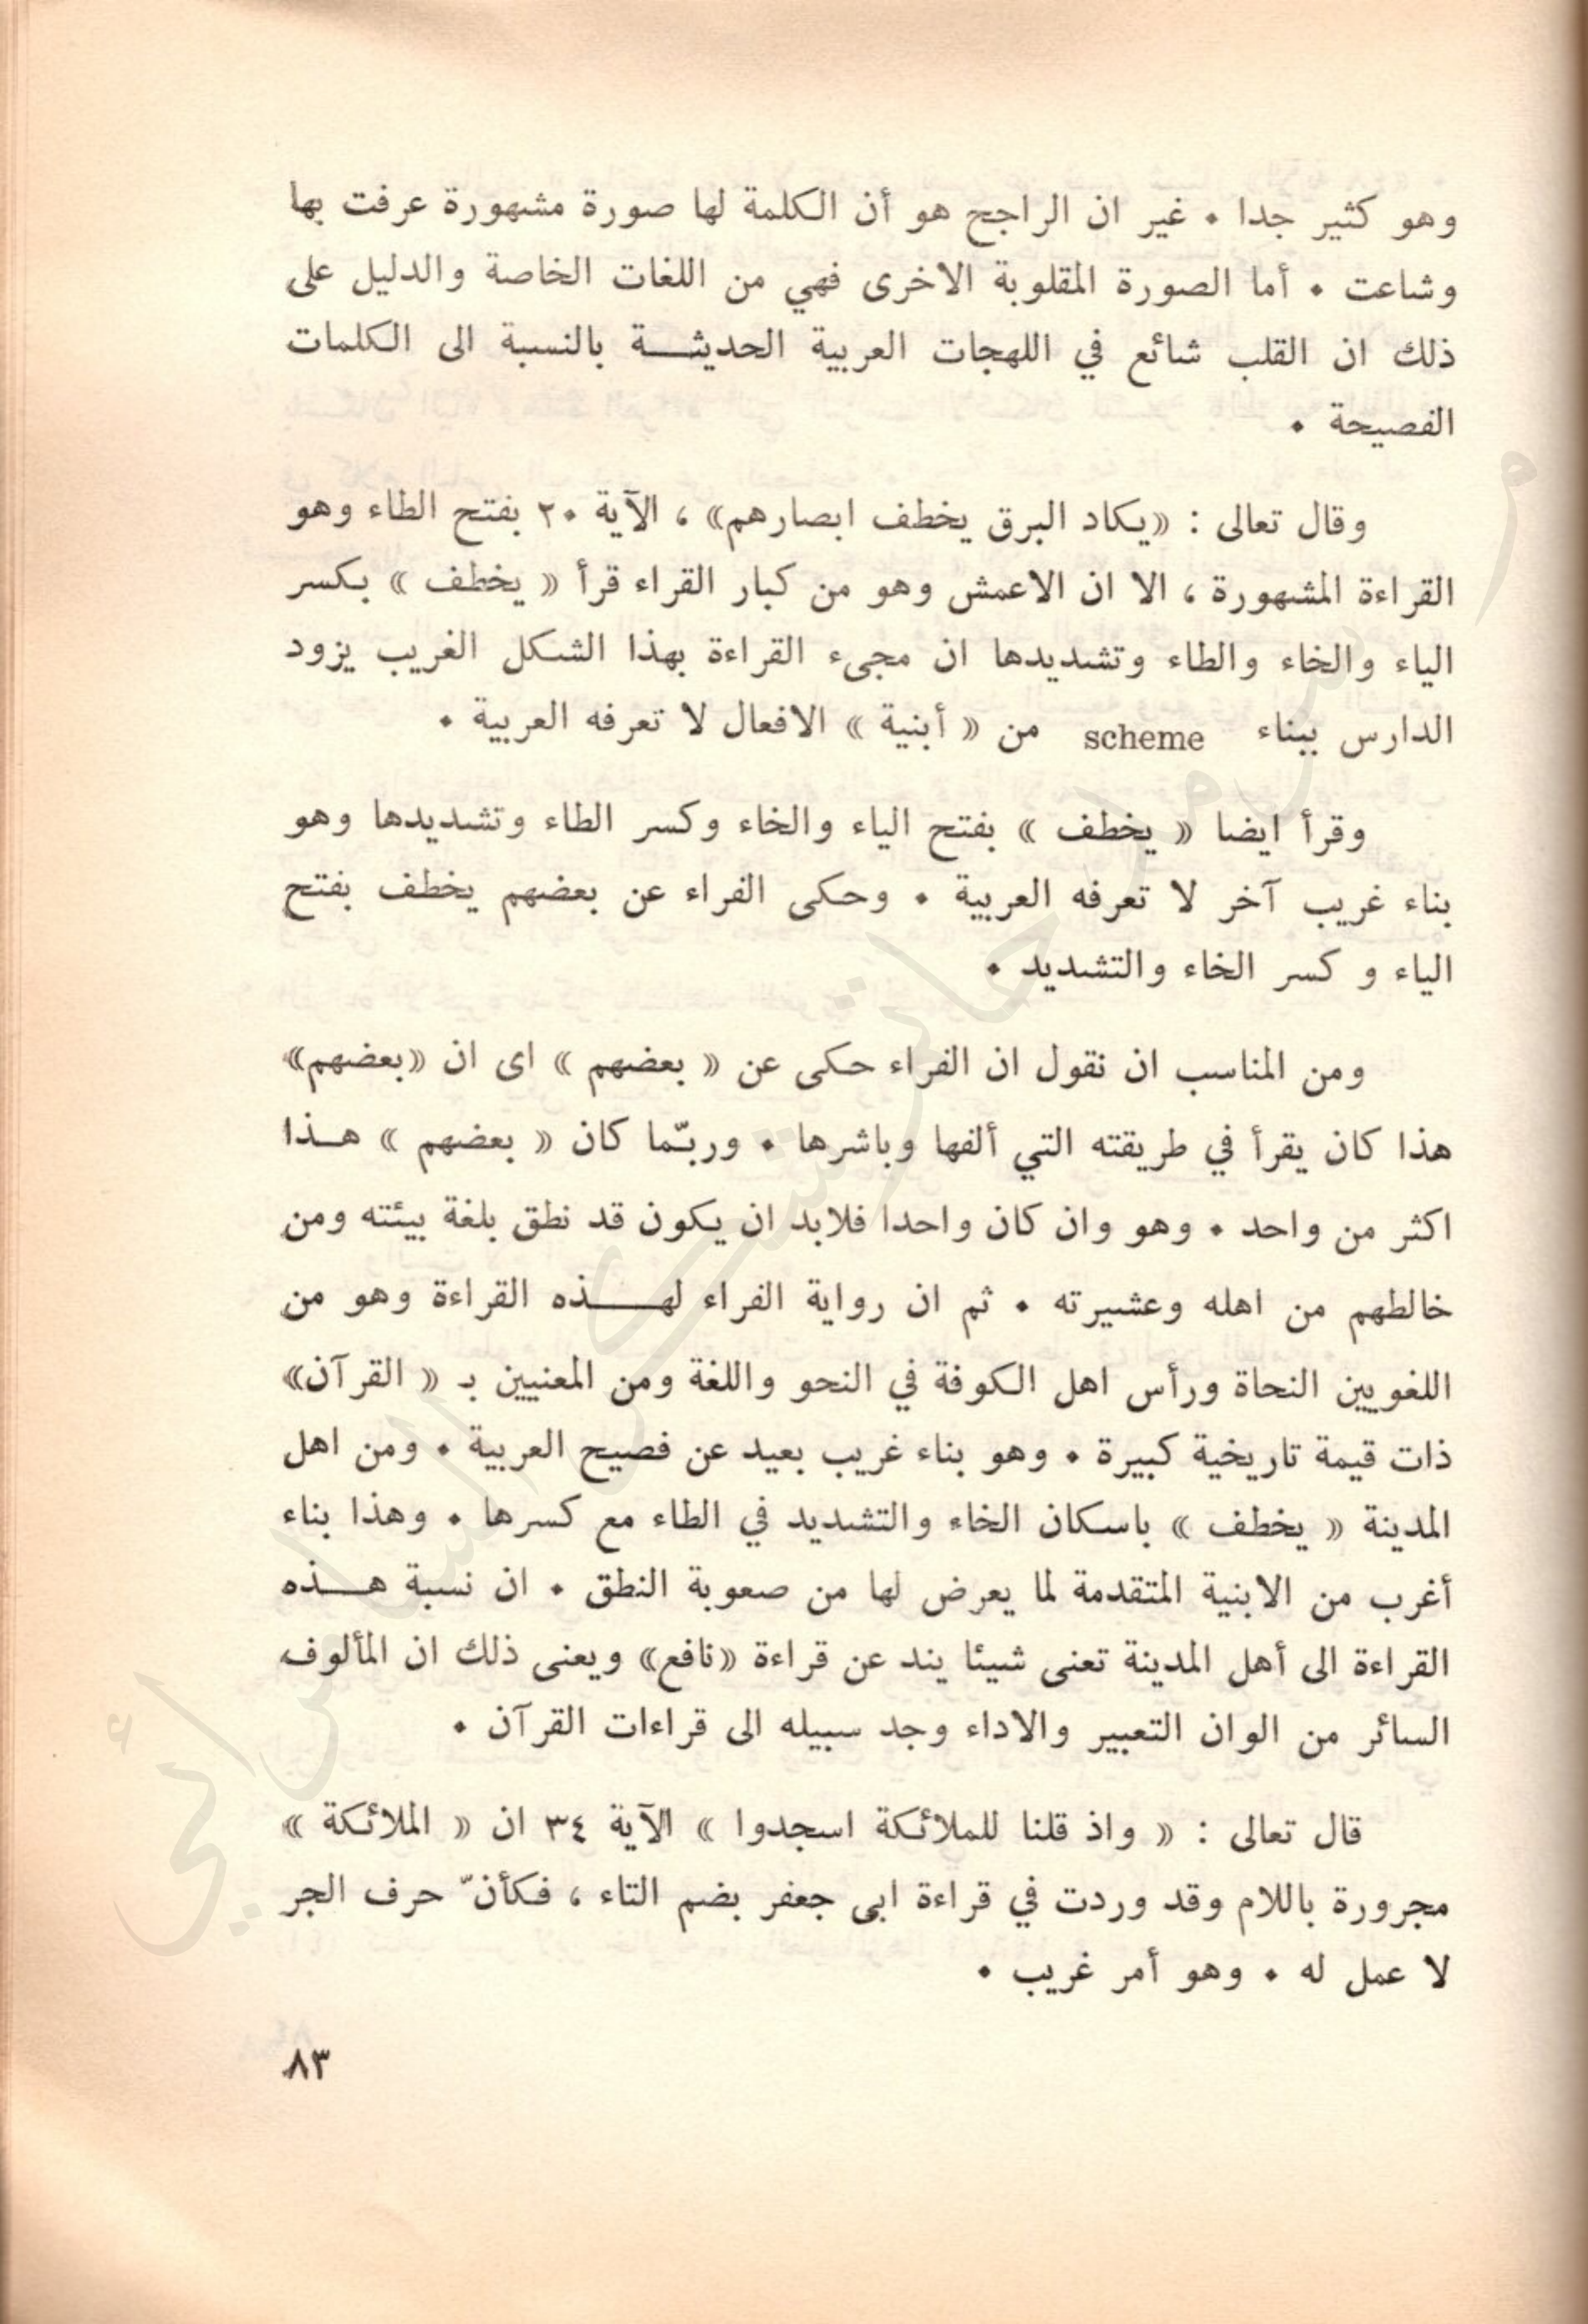 وهو كثير جدا . غير ان الراجح هو أن الكلمة لها صورة مشهورة عرفت بها
وشاعت . أما الصورة المقلوبة الاخرى فهي من اللغات الخاصة والدليل على
ذلك ان القلب شائع في اللهجات العربية الحديثــة بالنسبة الى الكلمات
الفصيحة .
وقال تعالى : «يكاد البرق يخطف ابصارهم» ، الآية ٢٠ بفتح الطاء وهو
القراءة المشهورة ، الا ان الاعمش وهو من كبار القراء قرأ « يخطف » بكسر
الياء والخاء والطاء وتشديدها ان مجىء القراءة بهذا الشكل الغريب يزود
الدارس ببناء scheme من « أبنية » الافعال لا تعرفه العربية .
وقرأ ايضا « يخطف » بفتح الياء والخاء وكسر الطاء وتشديدها وهو
بناء غريب آخر لا تعرفه العربية . وحكى الفراء عن بعضهم يخطف بفتح
الياء و كسر الخاء والتشديد .
ومن المناسب ان نقول ان الفراء حكى عن « بعضهم » اى ان «بعضهم»
هذا كان يقرأ في طريقته التي ألفها وباشرها . وربّما كان « بعضهم » هــذا
اكثر من واحد . وهو وان كان واحدا فلابد ان يكون قد نطق بلغة بيئته ومن
خالطهم من اهله وعشيرته . ثم ان رواية الفراء لهــــذه القراءة وهو من
اللغويين النحاة ورأس اهل الكوفة في النحو واللغة ومن المعنيين بـ « القرآن»
ذات قيمة تاريخية كبيرة . وهو بناء غريب بعيد عن فصيح العربية . ومن اهل
المدينة « يخطف » باسكان الخاء والتشديد في الطاء مع كسرها . وهذا بناء
أغرب من الابنية المتقدمة لما يعرض لها من صعوبة النطق . ان نسبة هــذه
القراءة الى أهل المدينة تعنى شيئا يند عن قراءة «نافع» ويعنى ذلك ان المألوف
السائر من الوان التعبير والاداء وجد سبيله الى قراءات القرآن .
قال تعالى : « واذ قلنا للملائكة اسجدوا » الآية ٣٤ ان « الملائكة »
مجرورة باللام وقد وردت في قراءة ابى جعفر بضم التاء ، فكأنّ حرف الجر
لا عمل له . وهو أمر غريب .
٨٣